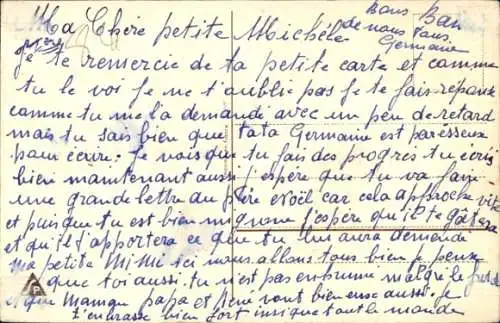 Ma Chère petite Michéle
Bons Bai
de nous tous
Germaine
Je te remercie de ta petite carte et comme
tu le voi je ne t'oublie pas Je te fais réponse
comme tu me la demandé avec un peu de retard
mais tu sais bien que tata Germaine est paresseux
pour écrire. Je vois que tu fais des progrès tu écris
bien maintenant aussi j'espère que tu va faire
une grande lettre du père noël car cela approche vite
et puisque tu est bien mignone j'espère qu'il te gatera
et qu'il t'apportera ce que tu lui aura demandé
ma petite Mimi ici nous allons tous bien je pense
que toi aussi tu n'est pas enrhumé malgré le froid
et que Maman papa et René vont bien eux aussi. Je
t'embrasse bien fort insi que tout le monde